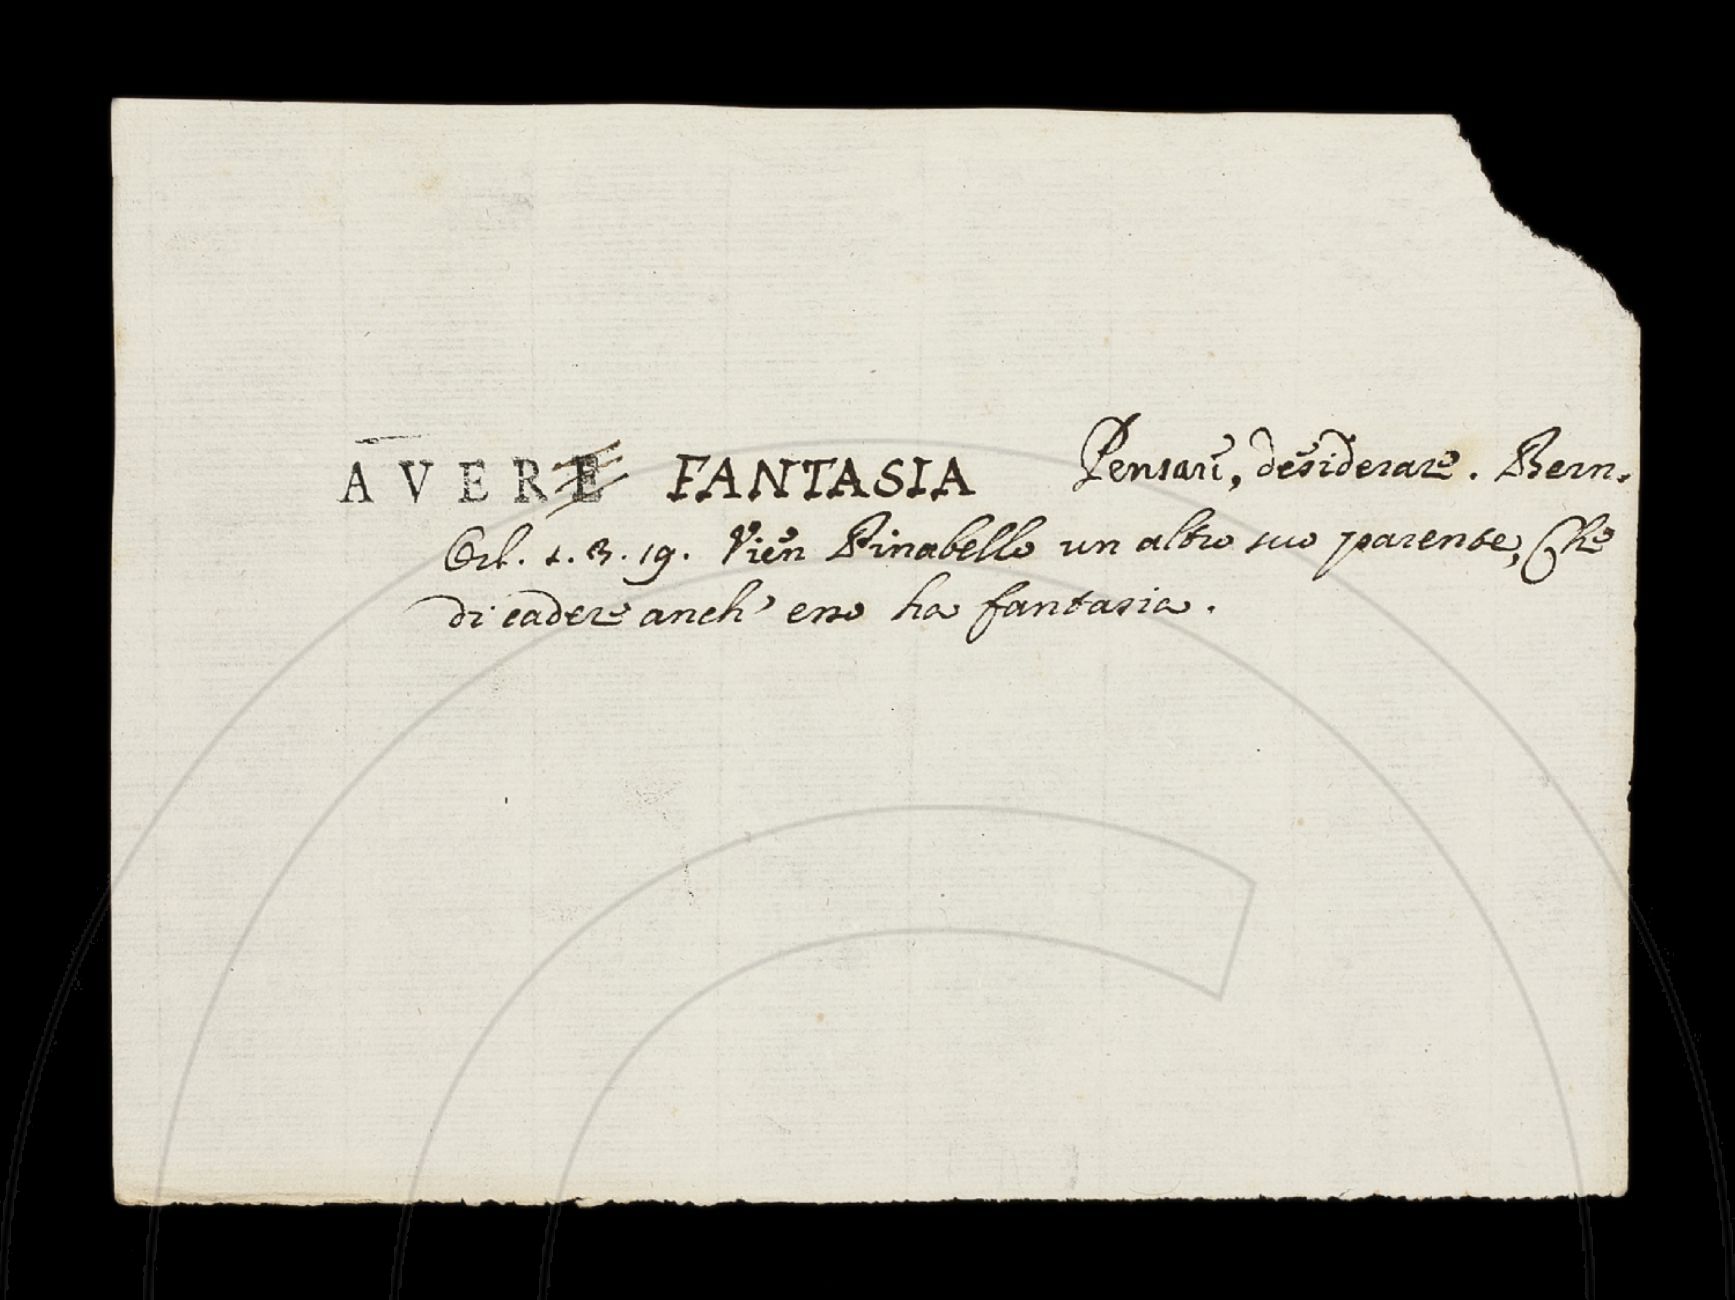 AVERE FANTASIA Pensare, desiderare. Bern.
Orl. 1. 3. 19. Vien Pinabello un altro suo parente, Che
di cader anch' esso ha fantasia.